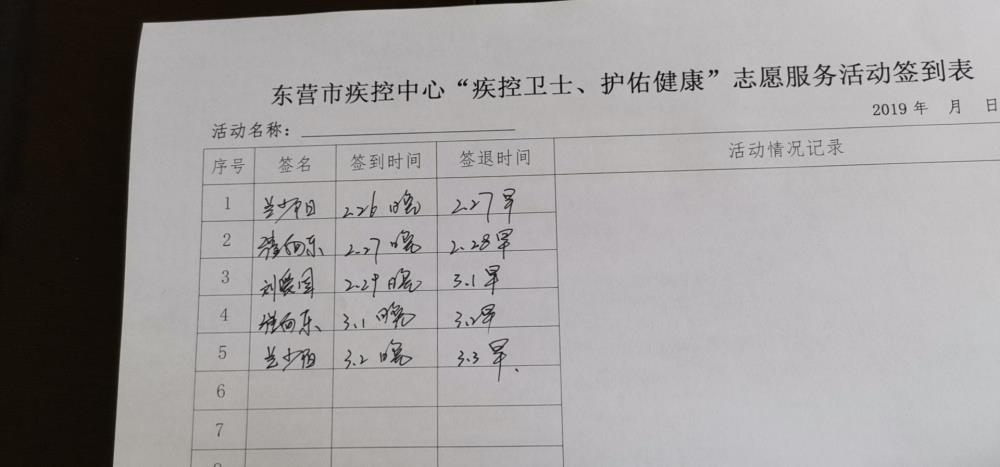 东营市疾控中心“疾控卫士、护佑健康”志愿服务活动签到表
2019 年 月 日
活动名称：
序号 签名 签到时间 签退时间 活动情况记录
1 2.26 晚 2.27 早
2 向东 2.27 晚 2.28 早
3 刘爱国 2.29 晚 3.1 早
4 向东 3.1 晚 3.2 早
5 兰少 3.2 晚 3.3 早
6
7
8